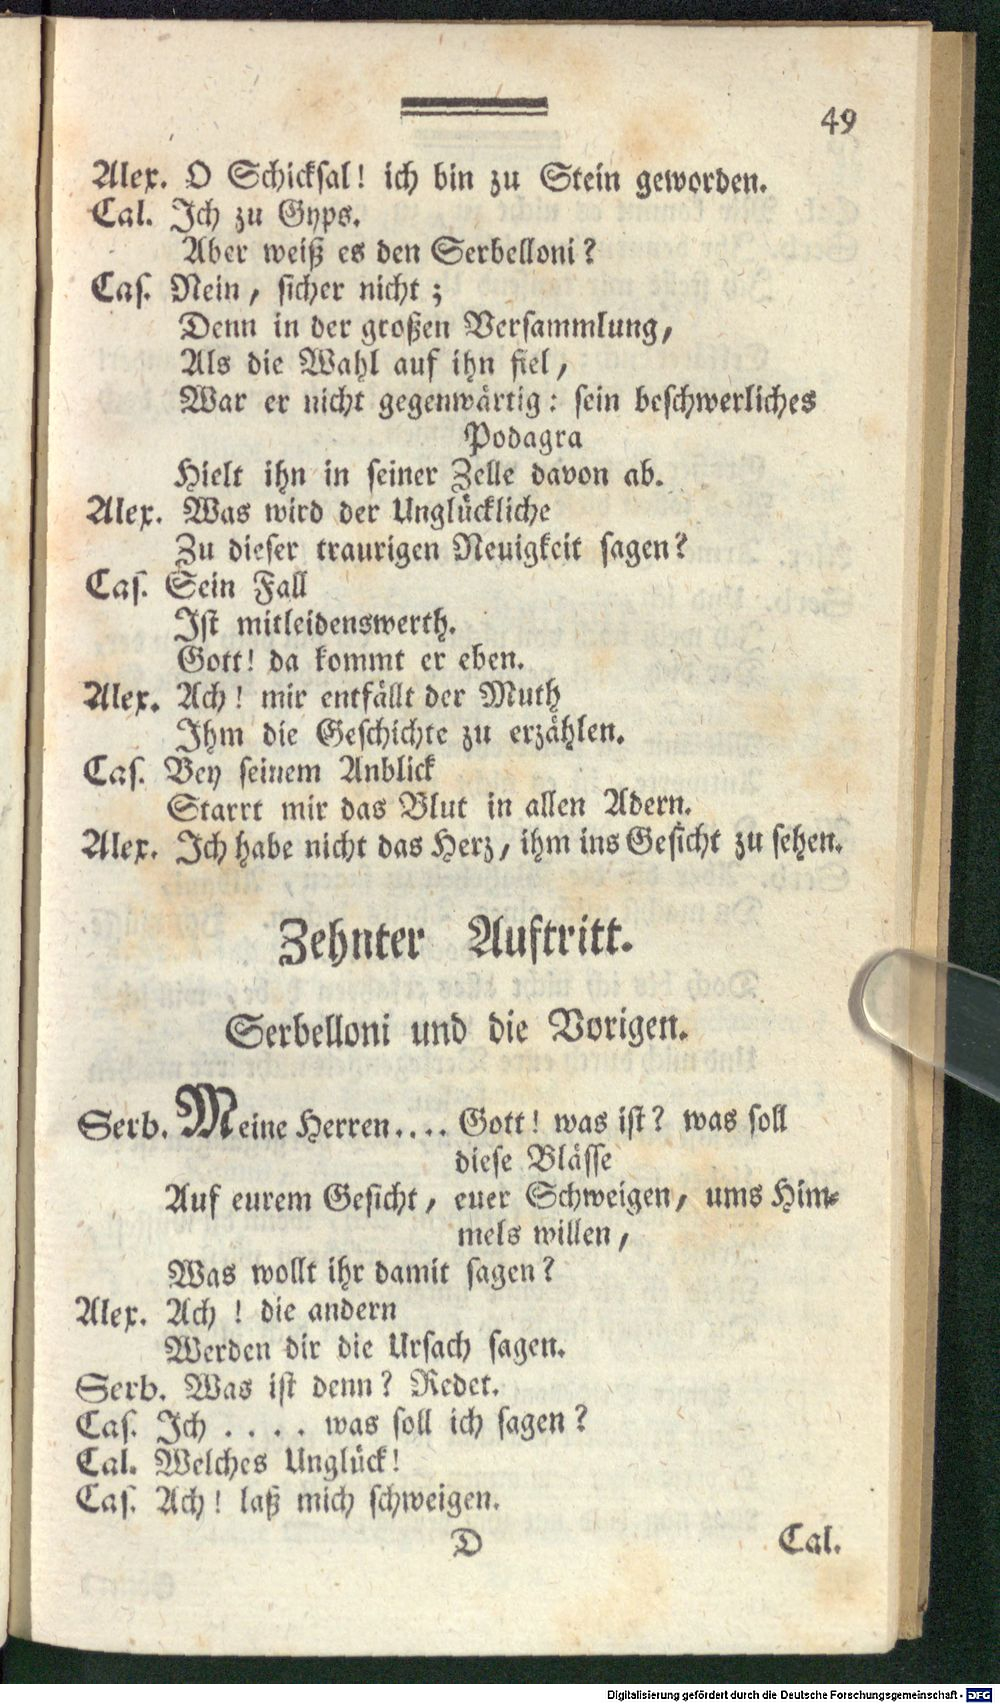 49
Alex. O Schicksal! ich bin zu Stein geworden.
Cal. Ich zu Gyps.
Aber weiß es den Serbelloni?
Cas. Nein, sicher nicht;
Denn in der großen Versammlung,
Als die Wahl auf ihn fiel,
War er nicht gegenwärtig: sein beschwerliches
Podagra
Hielt ihn in seiner Zelle davon ab.
Alex. Was wird der Unglückliche
Zu dieser traurigen Neuigkeit sagen?
Cas. Sein Fall
Ist mitleidenswerth.
Gott! da kommt er eben.
Alex. Ach! mir entfällt der Muth
Ihm die Geschichte zu erzählen.
Cas. Bey seinem Anblick
Starrt mir das Blut in allen Adern.
Alex. Ich habe nicht das Herz, ihm ins Gesicht zu sehen.
Zehnter Auftritt.
Serbelloni und die Vorigen.
Serb. Meine Herren.... Gott! was ist? was soll
diese Blässe
Auf eurem Gesicht, euer Schweigen, ums Him-
mels willen,
Was wollt ihr damit sagen?
Alex. Ach! die andern
Werden dir die Ursach sagen.
Serb. Was ist denn? Redet.
Cas. Ich .... was soll ich sagen?
Cal. Welches Unglück!
Cas. Ach! laß mich schweigen.
D Cal.
Digitalisierung gefördert durch die Deutsche Forschungsgemeinschaft - DFG